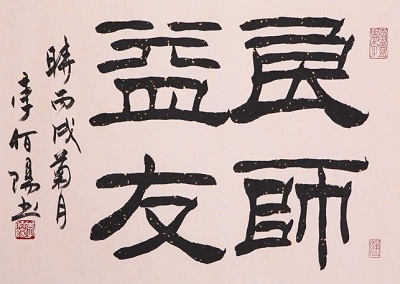 良師
益友
時丙戌菊月
李 陽书